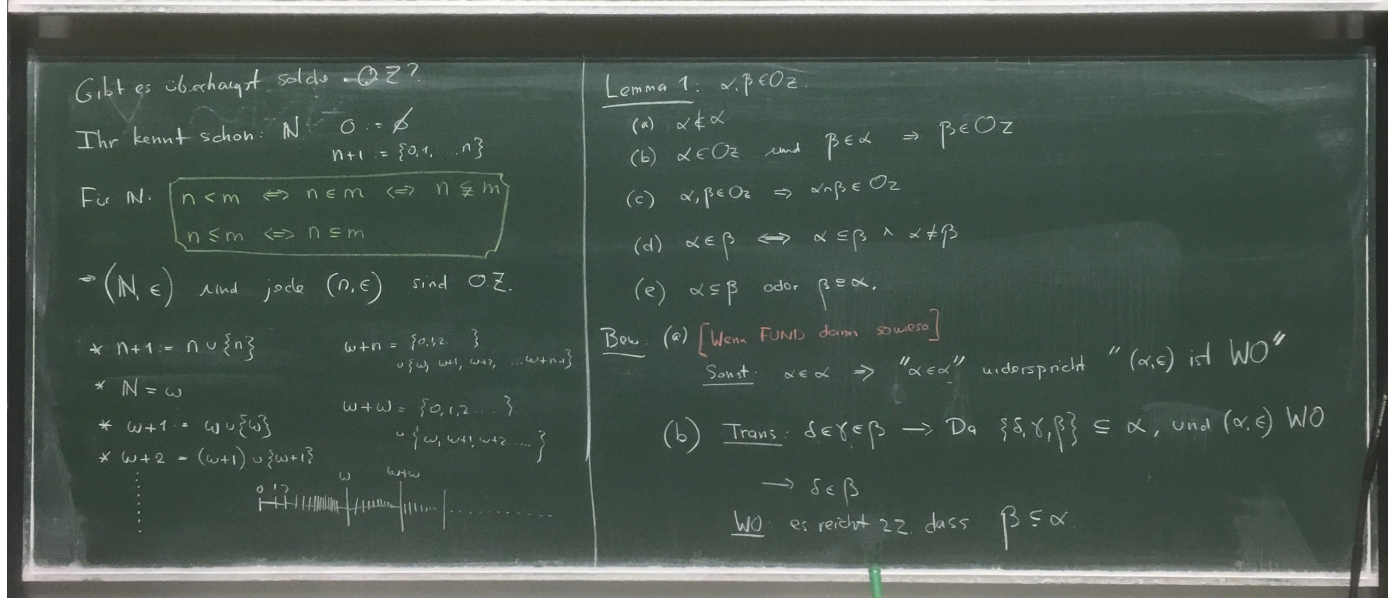 Gibt es überhaupt solche OZ?
Ihr kennt schon: ℕ 0 := ∅
n+1 := {0,1, ... n}
Für ℕ: n < m ⇔ n ∈ m ⇔ n ⊊ m
n ≤ m ⇔ n ⊆ m
→ (ℕ, ∈) und jede (n, ∈) sind O.Z.
* n+1 := n ∪ {n}
* ℕ = ω
* ω+1 = ω ∪ {ω}
* ω+2 = (ω+1) ∪ {ω+1}
ω+n = {0,1,2... }
∪ {ω, ω+1, ω+2, ... ω+n-1}
ω+ω = {0,1,2 .... }
∪ {ω, ω+1, ω+2 .... }
0 1 2 ω ω+ω
Lemma 1: α, β ∈ Oz.
(a) α ∉ α
(b) α ∈ Oz und β ∈ α ⇒ β ∈ Oz
(c) α, β ∈ Oz ⇒ α ∩ β ∈ Oz
(d) α ∈ β ⇔ α ⊆ β ∧ α ≠ β
(e) α ⊆ β oder β ⊆ α.
Bew: (a) [Wenn FUND dann sowieso]
Sonst: α ∈ α ⇒ "α ∈ α" widerspricht "(α, ∈) ist WO"
(b) Trans: δ ∈ γ ∈ β → Da {δ, γ, β} ⊆ α, und (α, ∈) WO
→ δ ∈ β
WO: es reicht zz. dass β ⊆ α